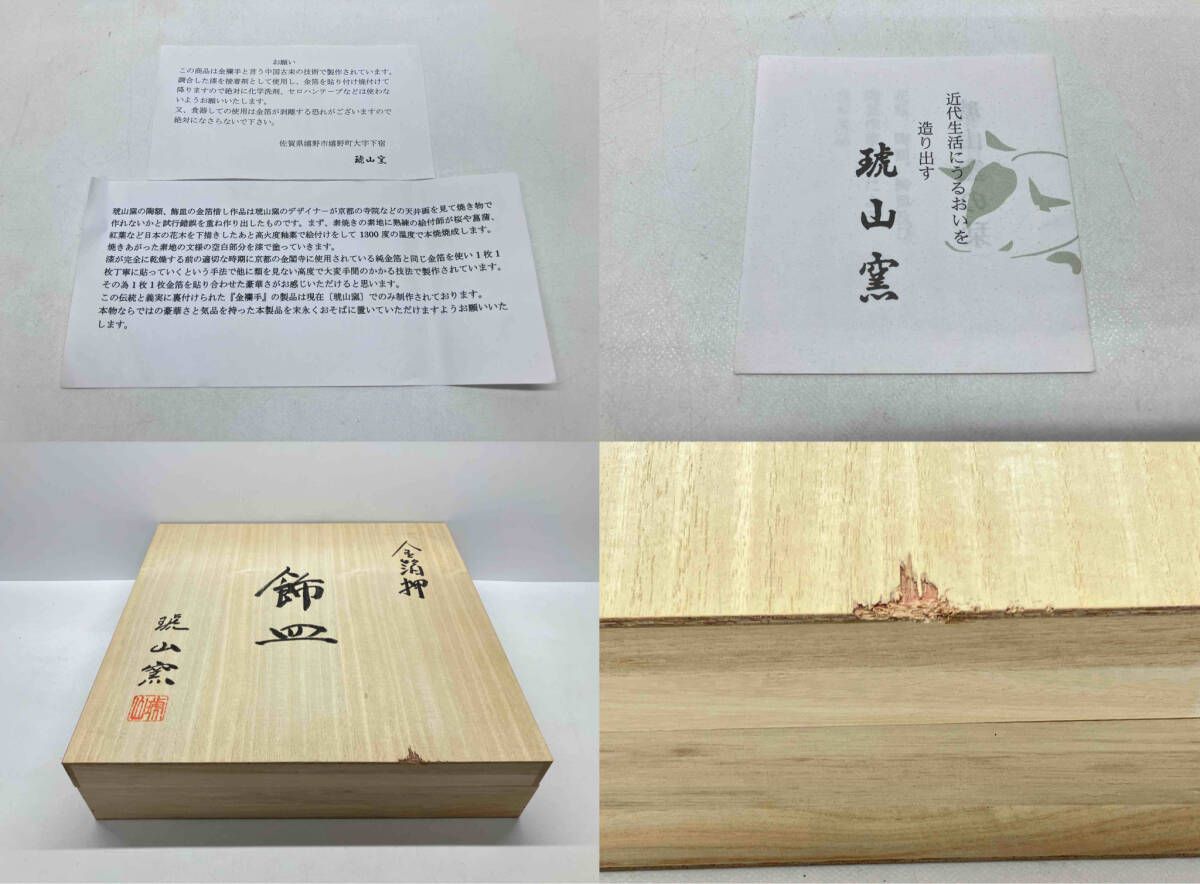 お願い
この商品は金襴手と言う中国古来の技術で製作されています。
調合した漆を接着剤として使用し、金箔を貼り付け焼付けて
降りますので絶対に化学洗剤、セロハンテープなどは使わな
いようお願いいたします。
又、食器しての使用は金箔が剥離する恐れがございますので
絶対になさらないで下さい。
佐賀県嬉野市嬉野町大字下宿
琥山窯
琥山窯の陶額、飾皿の金箔惜し作品は琥山窯のデザイナーが京都の寺院などの天井画を見て焼き物で
作れないかと試行錯誤を重ね作り出したものです。まず、素焼きの素地に熟練の絵付師が桜や菖蒲、
紅葉など日本の花木を下描きしたあと高火度釉薬で絵付けをして 1300 度の温度で本焼焼成します。
焼きあがった素地の文様の空白部分を漆で塗っていきます。
漆が完全に乾燥する前の適切な時期に京都の金閣寺に使用されている純金箔と同じ金箔を使い 1 枚 1
枚丁寧に貼っていくという手法で他に類を見ない高度で大変手間のかかる技法で製作されています。
その為 1 枚 1 枚金箔を貼り合わせた豪華さがお感じいただけると思います。
この伝統と義実に裏付けられた『金襴手』の製品は現在〔琥山窯〕でのみ制作されております。
本物ならではの豪華さと気品を持った本製品を末永くおそばに置いていただけますようお願いいた
します。
近代生活にうるおいを
造り出す
琥山窯
金箔押
飾皿
琥山窯